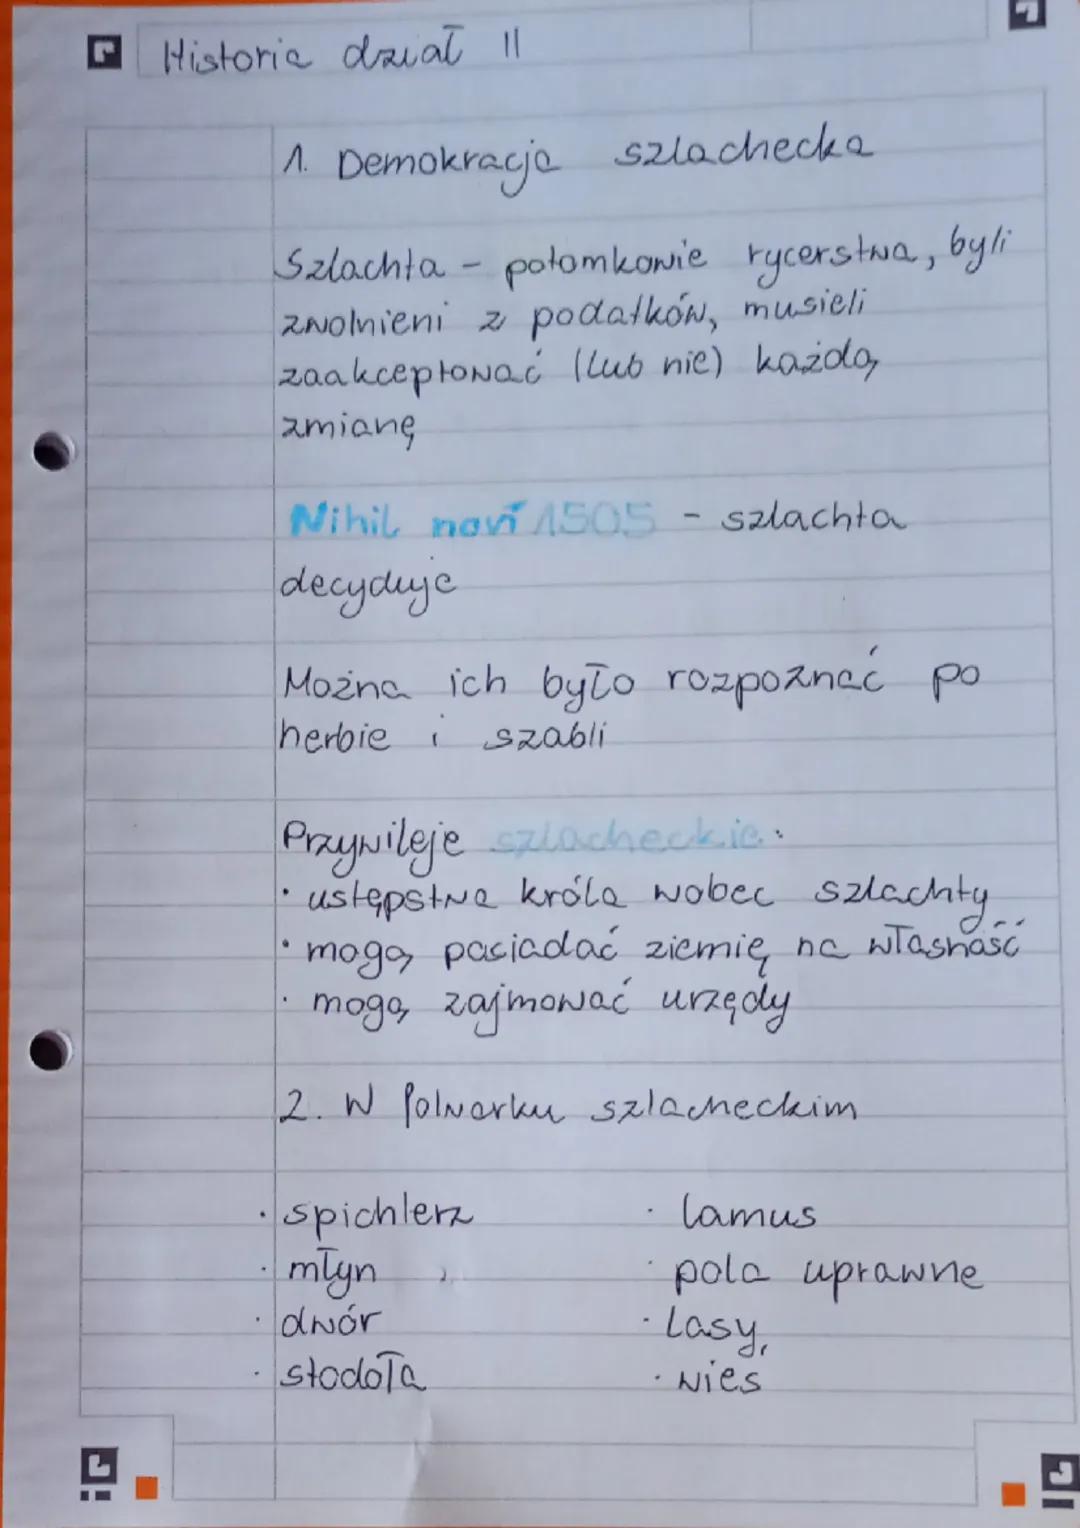 Historia dział II
1. Demokracja szlachecka
Szlachta - potomkowie rycerstwa, byli
zwolnieni z podatków, musieli
zaakceptować (lub nie) każdą
zmianę
Nihil novi 1505 - szlachta
decyduje
Można ich było rozpoznać po
herbie i szabli
Przywileje szlacheckie:
· ustępstwa króla wobec szlachty
· mogą posiadać ziemię na własność
· mogą zajmować urzędy
2. W folwarku szlacheckim
· spichlerz
· młyn
· dwór
· stodoła
· lamus
· pola uprawne
· lasy
· wieś